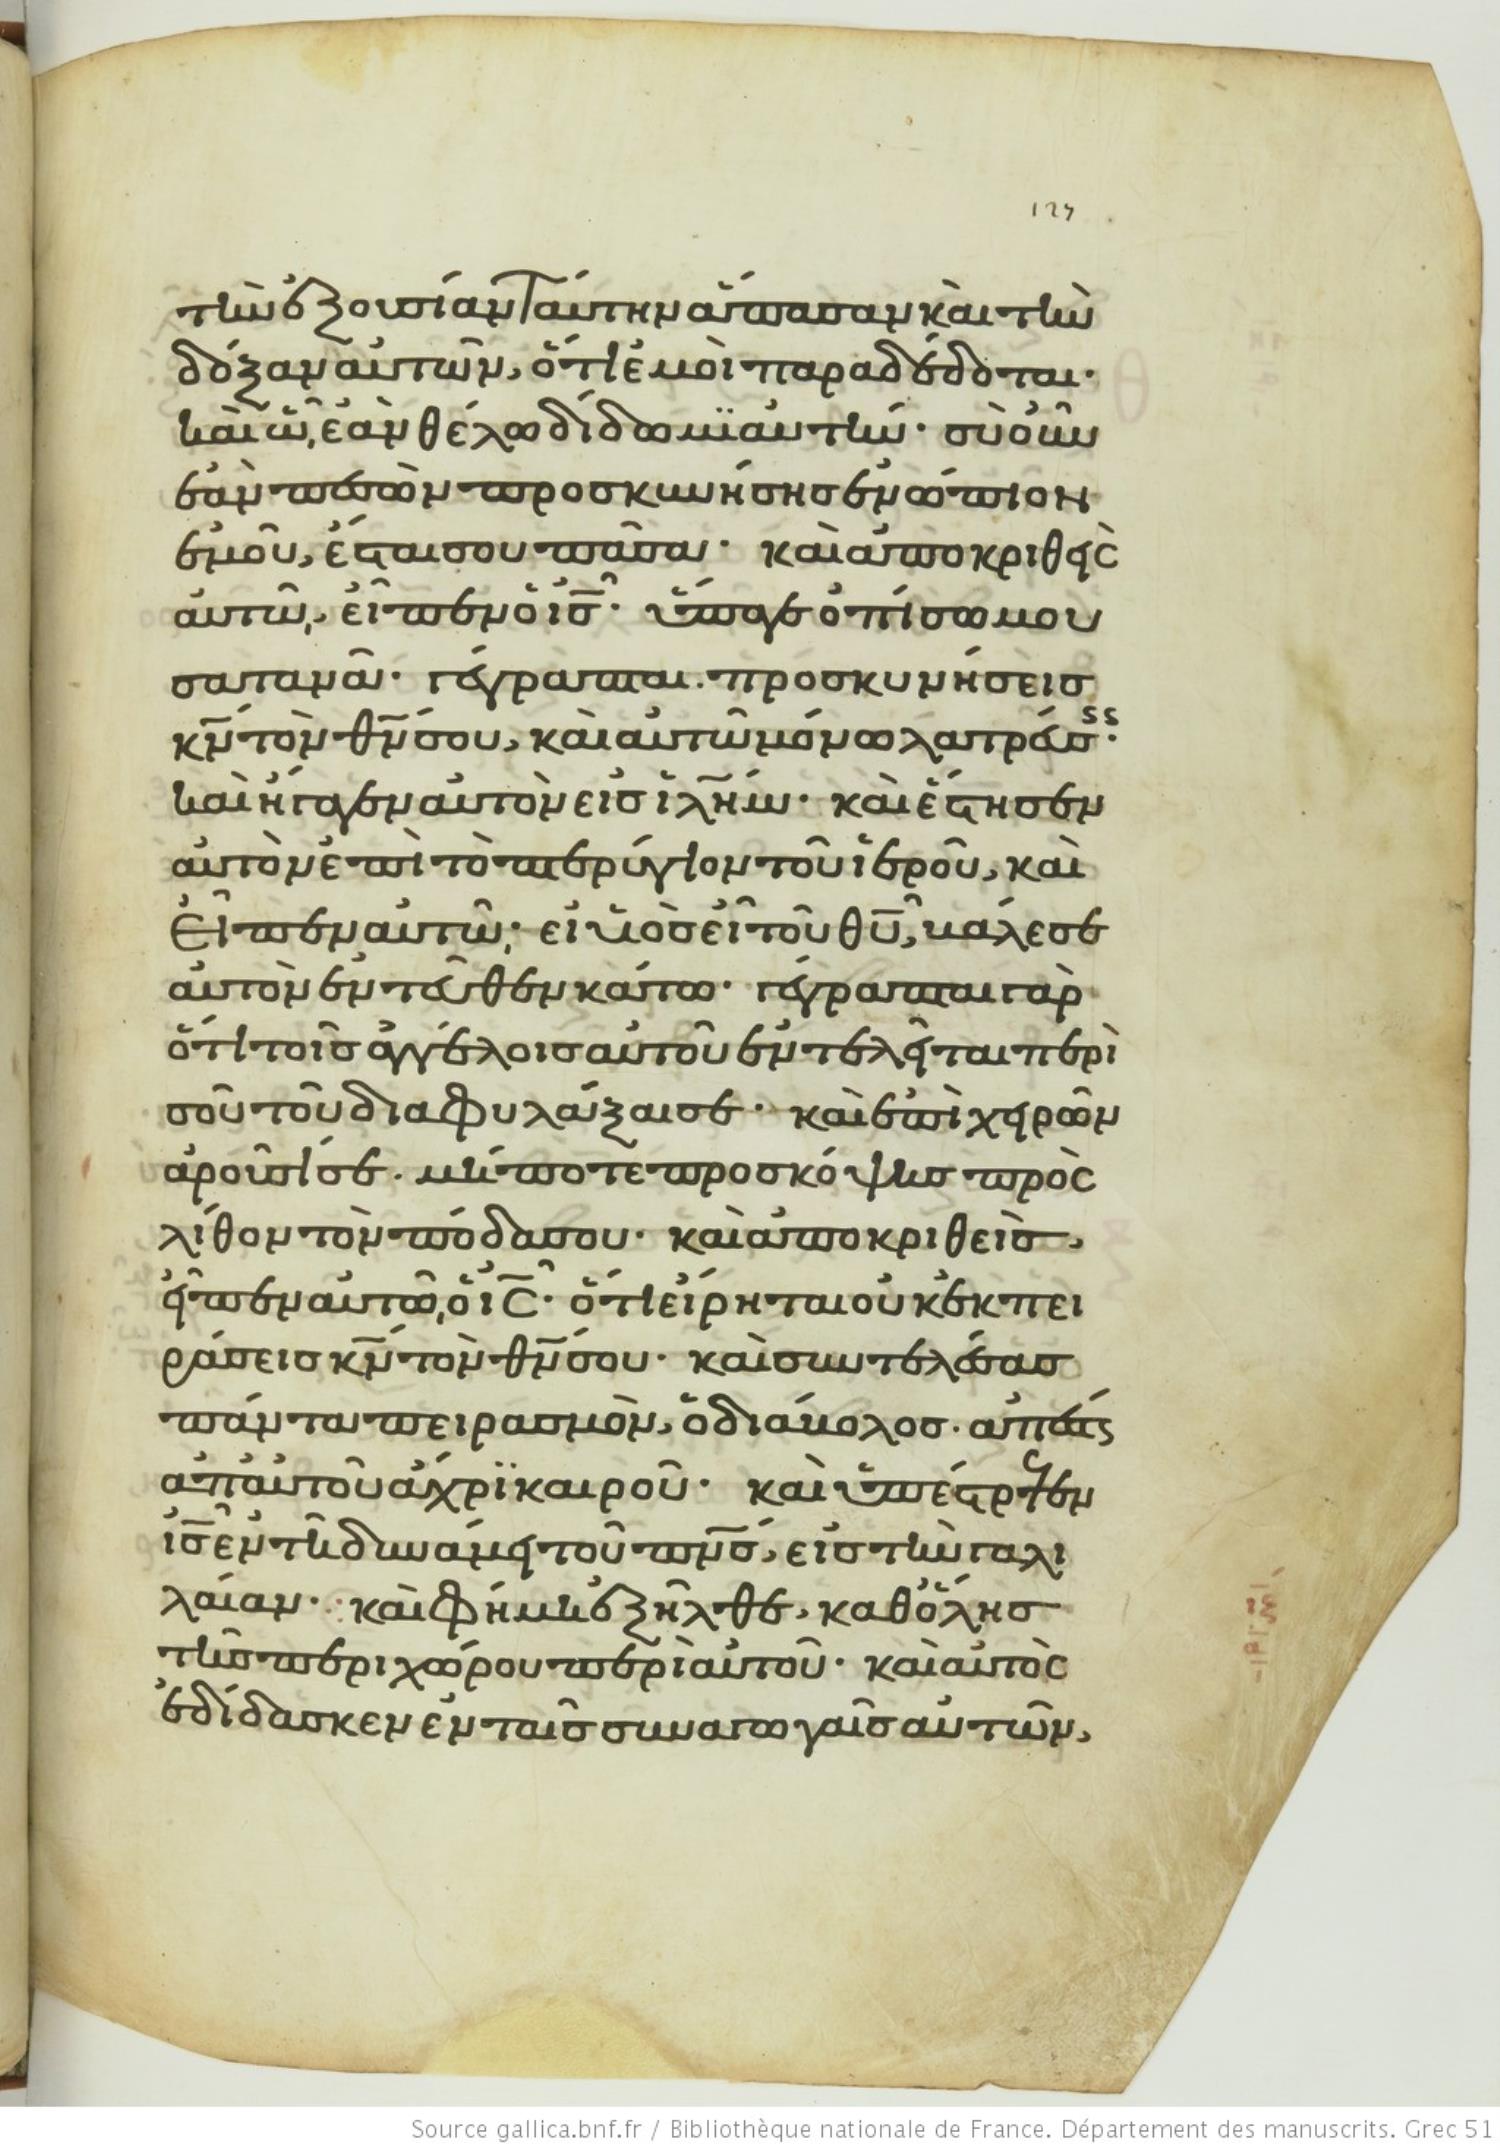 127
τὴν ἐξουσίαν ταύτην ἅπασαν καὶ τὴν
δόξαν αὐτῶν, ὅτι ἐμοὶ παραδέδοται·
καὶ ᾧ ἐὰν θέλω δίδωμϊ αὐτήν· σὺ οὖν
ἐὰν πεσὼν προσκυνήσησ ἐνώπιον
ἐμοῦ, ἔσται σου πᾶσα· καὶ ἀποκριθεὶς
αὐτῶ, εἶπεν ὁ ἰς̅· ὕπαγε ὀπίσω μου
σατανᾶ· γέγραπται. προσκυνήσεισ
κν̅ τὸν θν̅ σου, καὶ αὐτῶ μόνω λατρεύσ
καὶ ἤγαγεν αὐτὸν εἰσ ἱλῆ̅μ· καὶ ἔστησεν
αὐτὸν ἐπὶ τὸ πτερύγιον τοῦ ἱεροῦ, καὶ
εἶπεν αὐτῶ· εἰ υἱὸσ εἶ τοῦ θυ̅, βάλε σε
αὐτὸν ἐντεῦθεν κάτω· γέγραπται γὰρ
ὅτι τοῖσ ἀγγέλοισ αὐτοῦ ἐντελεῖται περὶ
σοῦ τοῦ διαφυλάξαι σε· καὶ ἐπὶ χειρῶν
ἀροῦσί σε. μήποτε προσκόψησ πρὸς
λίθον τὸν πόδα σου· καὶ ἀποκριθεὶσ,
εἶπεν αὐτῶ, ὁ ἰς̅· ὅτι εἴρηται οὐκ ἐκπει
ράσεισ κν̅ τὸν θν̅ σου· καὶ συντελέσασ
πάντα πειρασμὸν, ὁ διάβολοσ. ἀπέστη
ἀπ αὐτοῦ ἄχρϊ καιροῦ· καὶ ὑπέστρεψεν
ἰς̅ ἐν τῆ δυνάμει τοῦ πνς̅, εἰσ τὴν γαλι
λαίαν· καὶ φήμη ἐξῆλθε, καθ ὅλησ
τῆσ περιχώρου περὶ αὐτοῦ· καὶ αὐτὸς
ἐδίδασκεν ἐν ταῖσ συναγωγαῖσ αὐτῶν,
Source gallica.bnf.fr / Bibliothèque nationale de France. Département des manuscrits. Grec 51